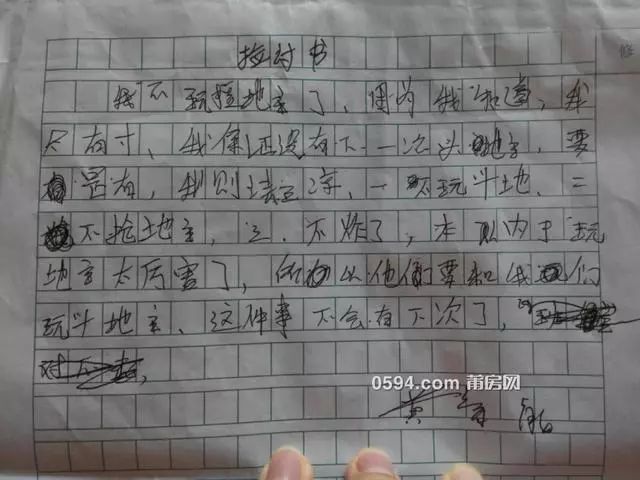 检讨书
我不玩抢地主了、因为我知道,我
只有寸、我保证没有下一次头地主,要
是有,我则结主泽,一不玩斗地、二
不抢地主,三、不炸了,本以内于玩
地主太厉害了,所以他们要和我们
玩斗地主、这件事不会有下次了,
0594.com 莆房网
黄